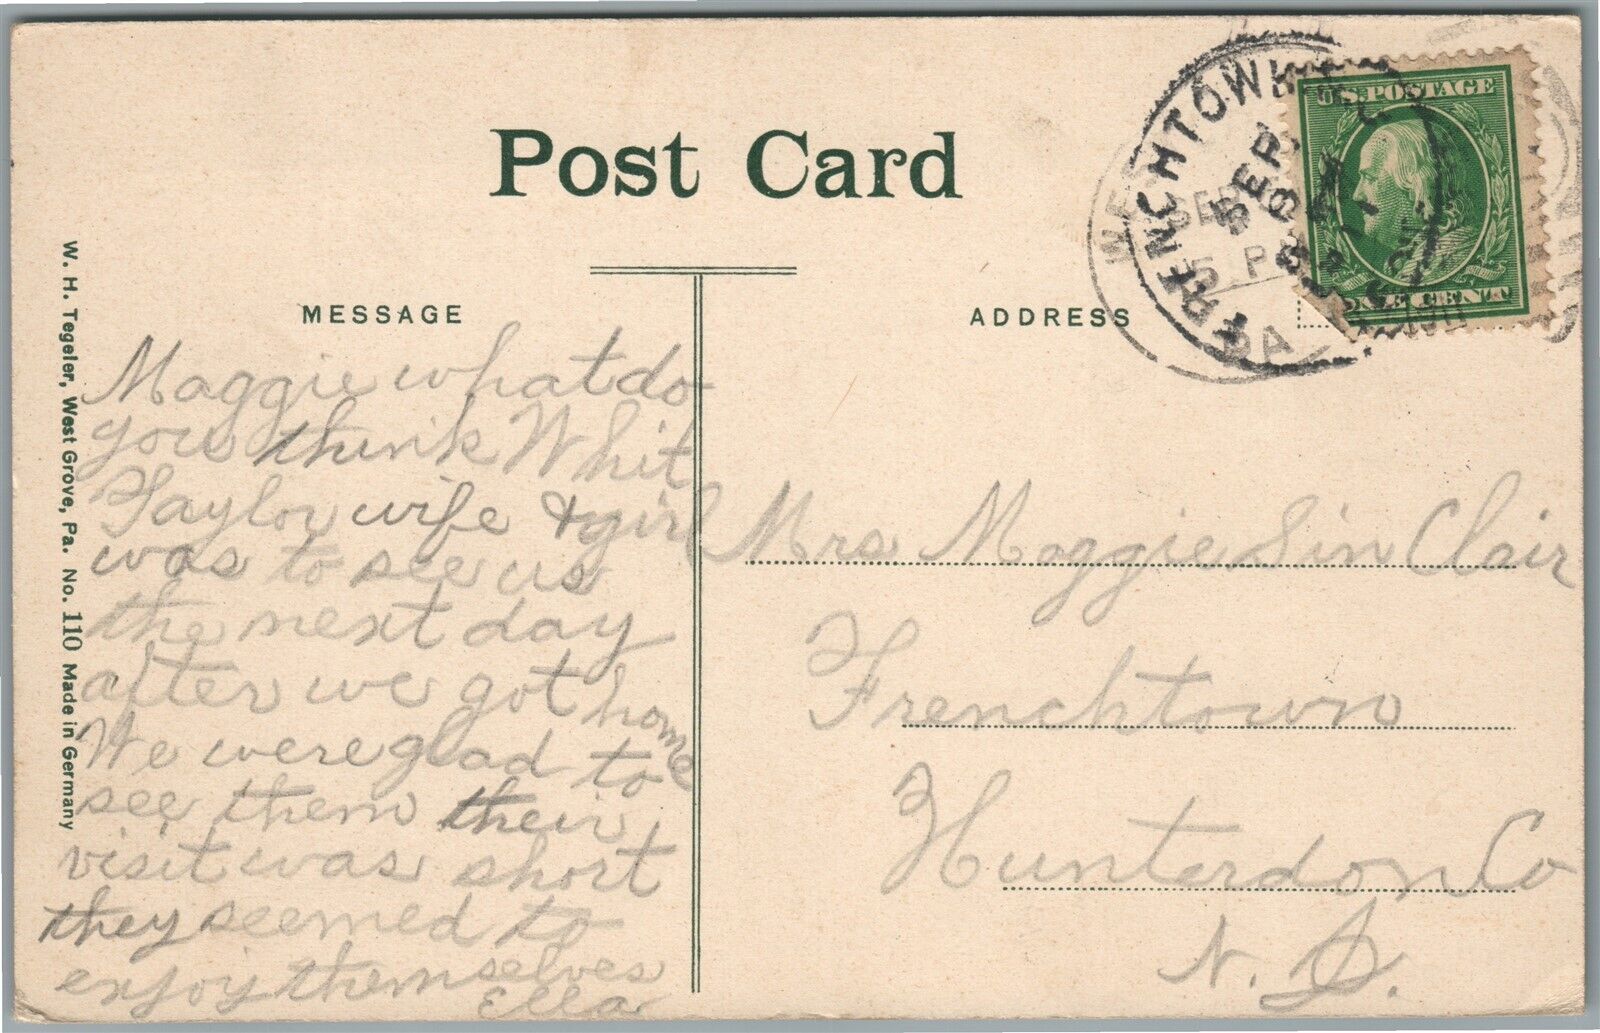 Post Card
MESSAGE
ADDRESS
W. H. Tegeler, West Grove, Pa. No. 110 Made in Germany
FRENCHTOWN
SEP
WEST
SEP
5 P
PA
U.S. POSTAGE
ONE CENT
Maggie what do
you think Whit
Taylor wife & girl
was to see us
the next day
after we got home
We were glad to
see them their
visit was short
they seemed to
enjoy themselves
Ella
Mrs Maggie Sin Clair
Frenchtown
Hunterdon Co
N. J.